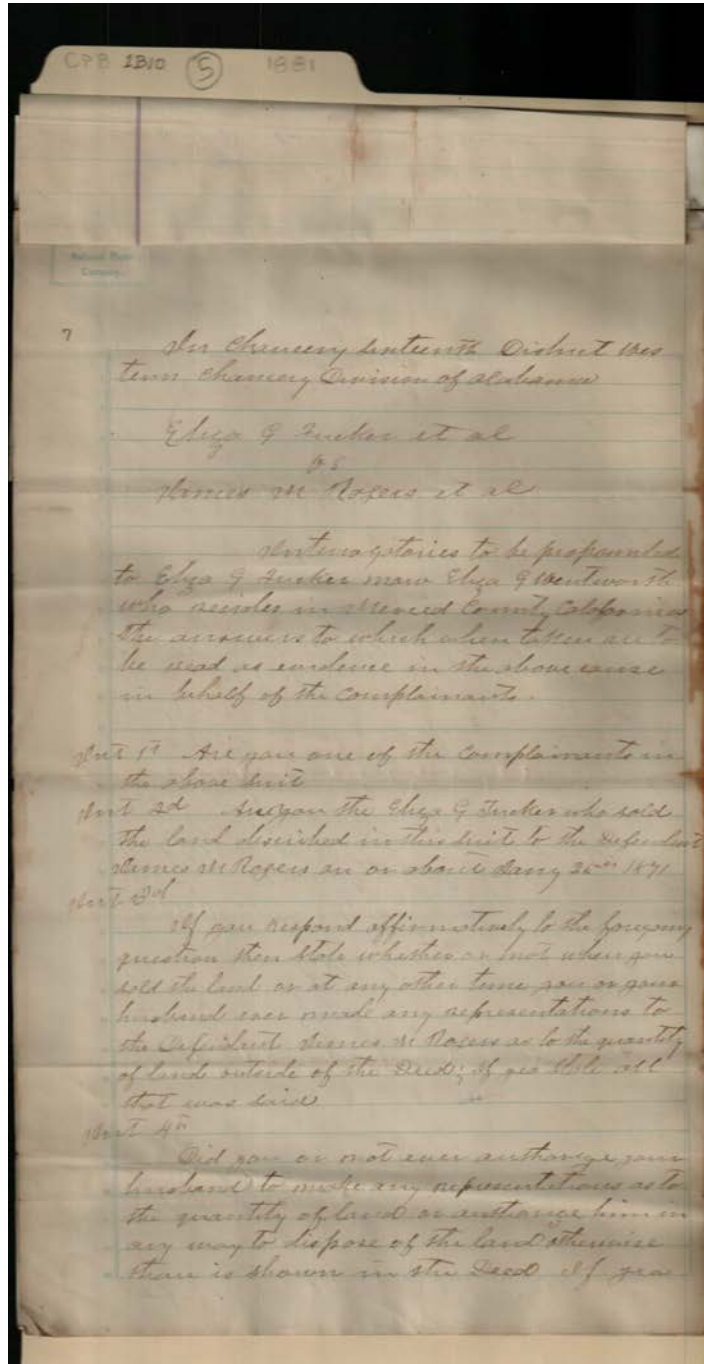 CPB 1B10 (5) 1881
National Bank
Company
7
In Chancery Sixteenth District Wes
tern Chancery Division of Alabama
Eliza G Tucker et al
vs
James M Rogers et al
Interrogatories to be propounded
to Eliza G Tucker now Eliza G Wentworth
who resides in Merced County California
the answers to which when taken are to
be read as evidence in the above cause
in behalf of the Complainants.
Int 1st Are you one of the Complainants in
the above suit
Int 2d Are you the Eliza G Tucker who sold
the land described in this suit to the Defendant
James M Rogers on or about Jany 1871
Int 3d
If you respond affirmatively to the foregoing
question then state whether or not when you
sold the land or at any other time you or your
husband ever made any representations to
the Defendant James M Rogers as to the quantity
of land outside of the Deed; if yea state all
that was said
Int 4th
Did you or not ever authorize your
husband to make any representations as to
the quantity of land or authorize him in
any way to dispose of the land otherwise
than is shown in the Deed If yea